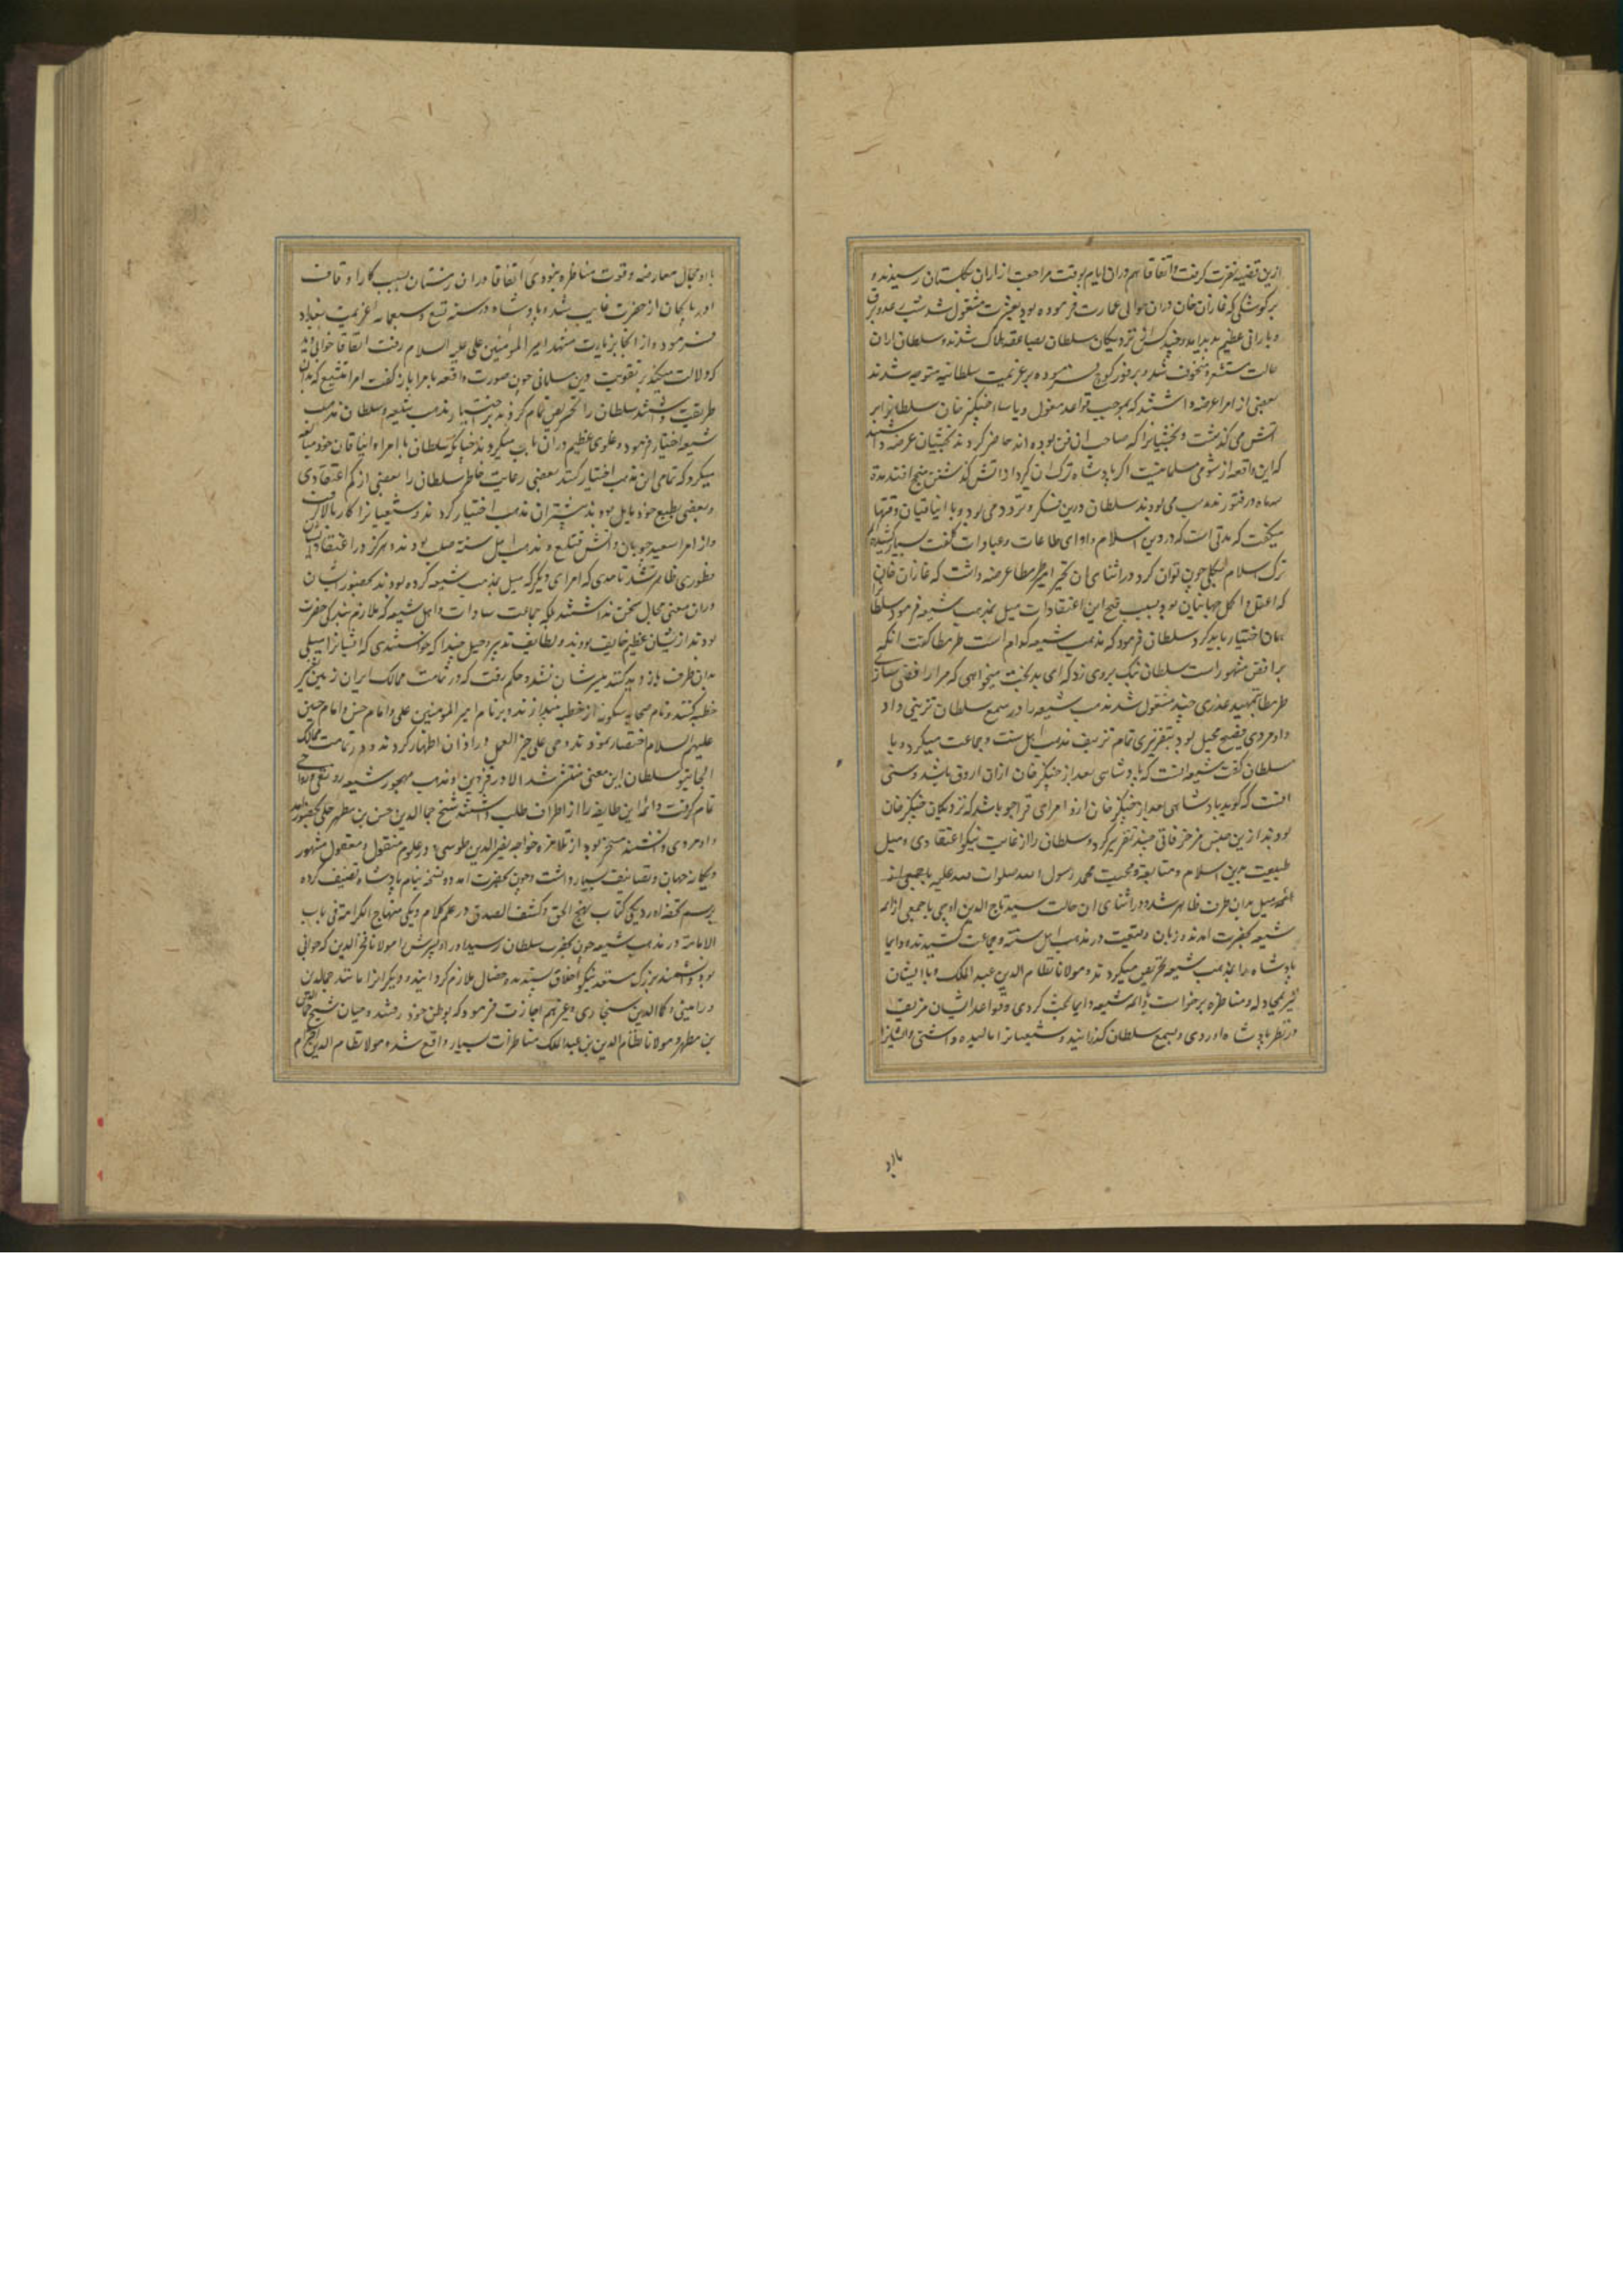 ازین قضیه نفرت گرفت و اتفاقا هم دران ایام بوقت مراجعت از اران بگلستان رسیدند و
بر کوشکی که غازان خان دران حوالی عمارت فرموده بود بعشرت مشغول شد شبی رعد و برق
و بارانی عظیم پدید امد و چند کس از نزدیکان سلطان بصاعقه هلاک شدند و سلطان ازان
حالت مستشعر و مخوف شد و بر فور کوچ فرموده بر عزیمت سلطانیه متوجه شدند
بعضی از امرا عرضه داشتند که بموجب قواعد مغول و یاسا چنگیز خان سلطانرا بر
اتش می باید گذشت و بخشیانرا که صاحب ان فن بوده اند حاضر کردند بخشیان عرضه داشتند
که این واقعه از شومی مسلمانیست اگر پادشاه ترک ان گیرد از اتش گذشتن منجح افتد مدة
سه ماه در فتور مذهب می بودند سلطان درین فکر و تردد می بود و با اینا قتیان وقتها
میگفت که مدتی است که در دین اسلام و ادای طاعات و عبادات کلفت بسیار کشیده ام
ترک اسلام بکلی چون توان کرد در اثنای ان تحیر امیر طرمطاز عرضه داشت که غازان خان
که اعقل و اکمل جهانیان بود بسبب قبح این اعتقادات میل بمذهب شیعه فرمود سلطانرا
همان اختیار باید کرد سلطان فرمود که مذهب شیعه کدام است طرمطاز گفت انکه
برافض مشهور است سلطان بانگ بروی زد که ای بدبخت میخواهی که مرا رافضی سازی
طرمطاز بتمهید عذری چند مشغول شد مذهب شیعه را در سمع سلطان تزیینی داد
و او مردی فصیح محیل بود بتقریری تمام تزییف مذهب اهل سنت و جماعت میکرد و با
سلطان گفت شیعه انست که پادشاهی بعد از چنگیز خان ازان اروق باشد و سنی
انست که گوید پادشاهی بعد از چنگیز خان ازو امرای قراجو باشد که نزدیکان چنگیز خان
بودند ازین جنس مزخرفاتی چند تقریر کرد و سلطان را از غایت نیکو اعتقادی و میل
طبیعت بدین اسلام و متابعة و محبت محمد رسول الله صلوات الله علیه
میل بدان طرف ظاهر شد و در اثنای ان حالت سید تاج الدین اوجی با جمعی از ائمه
شیعه بحضرت امدند و زبان وقیعت در مذهب اهل سنة و جماعت کشیدند و دایما
پادشاه را بمذهب شیعه تحریض میکردند و مولانا نظام الدین عبد الملک و با ایشان
بمجادله و مناظره برخواست و با ائمه شیعه دایما بحث کردی و قواعد ایشان مزیف
در نظر پادشاه اوردی و بسمع سلطان گذرانید و شیعیانرا مالیده داشتی و ایشانرا
با او
با او مجال معارضه و قوت مناظره نبودی اتفاقا دران زمستان بسبب کار اوقاف
اذربایجان از حضرت غایب شد و پادشاه در سنه تسع و سبعمایه عزیمت بغداد
فرمود و از انجا بزیارت مشهد امیر المومنین علی علیه السلام رفت اتفاقا خوابی دید
که دلالت میکند بر تقویت دین مسلمانی چون صورت واقعه با امرا باز گفت امرا متشیع که بدان
طریقت داشتند سلطان را تحریض تمام کردند بر اختیار مذهب شیعه و سلطان مذهب
شیعه اختیار فرمود و غلوی عظیم دران باب میکردند چنانکه سلطان با امرا و ایناقان خود مبالغه
میکرد که تمامی این مذهب اختیار کنند بعضی رعایت خاطر سلطان را بعضی از کم اعتقادی
و بعضی بطبع خود مایل بودند بیشتر ان مذهب اختیار کردند و شیعیانرا کار بالا گرفت
و از امرا سعید چوبان و ایسن قتلغ در مذهب اهل سنة صلب بودند و هرگز در اعتقاد ایشان
فطوری ظاهر نشد تا حدی که امرای دیگر که میل بمذهب شیعه کرده بودند بحضور ایشان
دران معنی مجال سخن نداشتند بلکه جماعت سادات و اهل شیعه که ملازم بندگی حضرت
بودند ازیشان عظیم خایف بودند و بلطایف تدبیر و حیل چندانکه خواستندی که ایشانرا میلی
بدان طرف بازدید کنند میسرشان نشد و حکم رفت که در تمامت ممالک ایران زمین تغییر
خطبه کنند و نام صحابه سگونه از خطبه بیندازند و بر نام امیر المومنین علی و امام حسن و امام حسین
علیهم السلام اختصار نمودند و حی علی خیر العمل در اذان اظهار کردند و در تمامت ممالک
الجایتو سلطان این معنی منتشر شد الا در قزوین و مذهب مهجور شیعه رونقی و رواجی
تمام گرفت و ائمه این طایفه را از اطراف طلب داشتند شیخ جمال الدین حسن بن مطهر حلی بحضور امد
و او مردی دانشمند متبحر بود از تلامذه خواجه نصیر الدین طوسی و در علوم منقول و معقول مشهور
و یگانه جهان و تصانیف بسیار داشت و چون بحضرت امد دو نسخه بنام پادشاه تصنیف کرده
برسم تحفه اورد یکی کتاب نهج الحق و کشف الصدق در علم کلام و یکی منهاج الکرامة فی باب
الامامة در مذهب شیعه چون بحضرت سلطان رسید او را و پسرش مولانا فخر الدین که جوانی
بود دانشمند بزرگ مستعد نیکو اخلاق پسندیده خصال ملازم گردانید و دیگرانرا مانند جمال الدین
ورامینی و کمال الدین سنجاری و غیرهم اجازت فرمود که بوطن خود رفتند و میان شیخ جمال الدین
بن مطهر و مولانا نظام الدین بن عبد الملک مناظرات بسیار واقع شد و مولانا نظام الدین